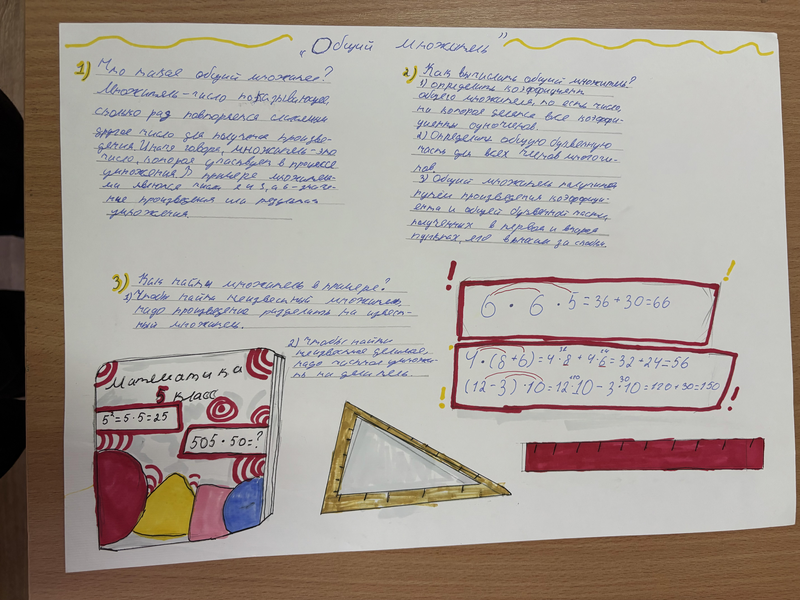 „Общий множитель"
1) Что такое общий множитель?
Множитель-число показывающее,
сколько раз повторяется слагаемое
другое число для получения произве-
дения. Иначе говоря, множитель-это
число, которое участвует в процессе
умножения. В примере множителя-
ми являются числа 2 и 3, а 6-значе-
ние произведения или результат
умножения
2) Как вычислить общий множитель?
1) определить коэффициент
общего множителя, то есть число,
на которое делятся все коэффи-
циенты одночленов.
2) Определить общую буквенную
часть для всех членов многочле-
нов
3) Общий множитель получится
путём произведения коэффици-
ента и общей буквенной части,
полученных в первом и втором
пунктах, его выносим за скобки.
3) Как найти множитель в примере?
1) Чтобы найти неизвестный множитель,
надо произведение разделить на извест-
ный множитель.
2) Чтобы найти
неизвестное делимое,
надо частное умножи-
ть на делитель.
6 · 6 · 5 = 36 + 30 = 66
4·(8+6)=4·8+4·6=32+24=56
(12-3)·10=12·10-3·10=120+30=150
Математика
5 класс
5²=5·5=25
505·50=?